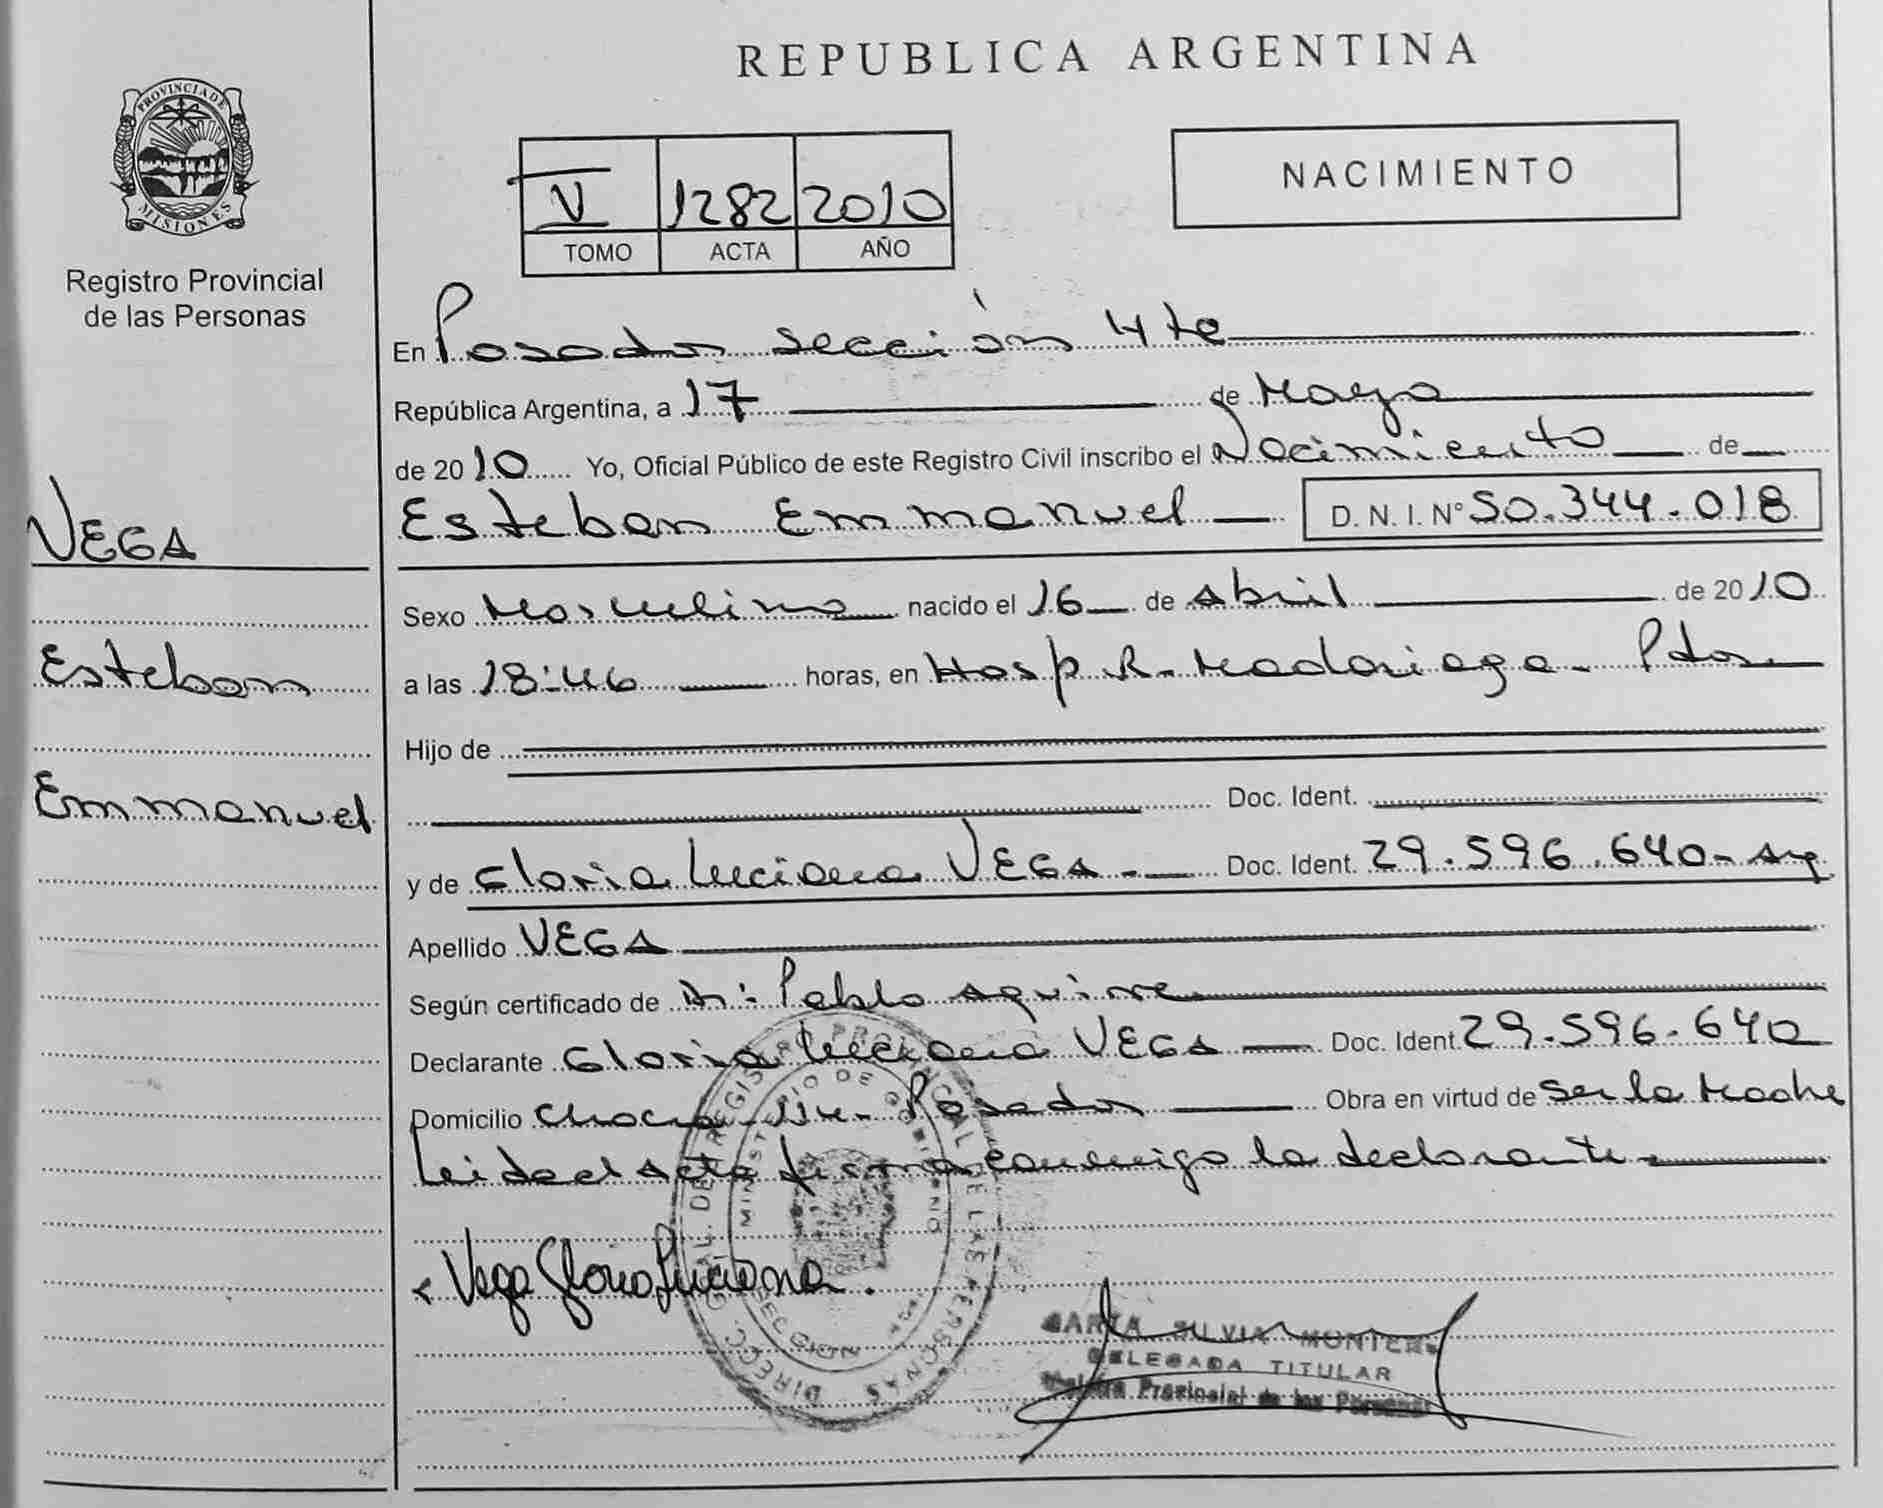 REPUBLICA ARGENTINA
PROVINCIA DE
MISIONES
Registro Provincial
de las Personas
V 1282 2010
TOMO ACTA AÑO
NACIMIENTO
En Posadas sección 4ta
República Argentina, a 17 de Mayo
de 2010 Yo, Oficial Público de este Registro Civil inscribo el Nacimiento de
Esteban Emmanuel D.N.I. N° 50.344.018
VEGA
Esteban
Emmanuel
Sexo Masculino nacido el 16 de Abril de 2010
a las 18:46 horas, en Hosp. R. Madariaga - Pdas
Hijo de
Doc. Ident.
y de Gloria Luciana VEGA - Doc. Ident. 29.596.640 - Arg
Apellido VEGA
Según certificado de Dr: Pablo Aguirre
Declarante Gloria Luciana VEGA Doc. Ident. 29.596.640
Domicilio Posadas Obra en virtud de Ser la Madre
Leida el Acta firma conmigo la declarante
Vega Gloria Luciana.
DIRECC. GRAL. DEL REGISTRO PROVINCIAL DE LAS PERSONAS
MINISTERIO DE GOBIERNO
SECCION
SILVIA
DELEGADA TITULAR
Provincial de las Personas